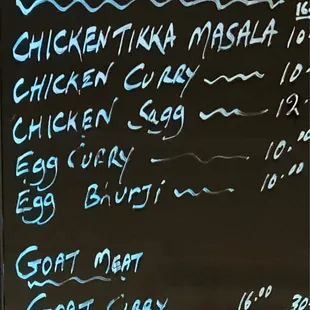 CHICKEN TIKKA MASALA 10
CHICKEN CURRY 10
CHICKEN Sagg 12
Egg CURRY 10.00
Egg BhURJi 10.00
GOAT MEAT
GOAT CURRY 16.00 30